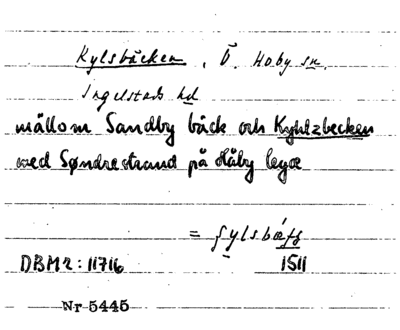 Kylsbäcken, Ö. Hoby sn.
Ingelstads hd
mällom Sandby bäck och Kyhlzbecken
wed Søndrestrand på Håby leyæ
=
DBM 2: 11716 1511
Nr 5445